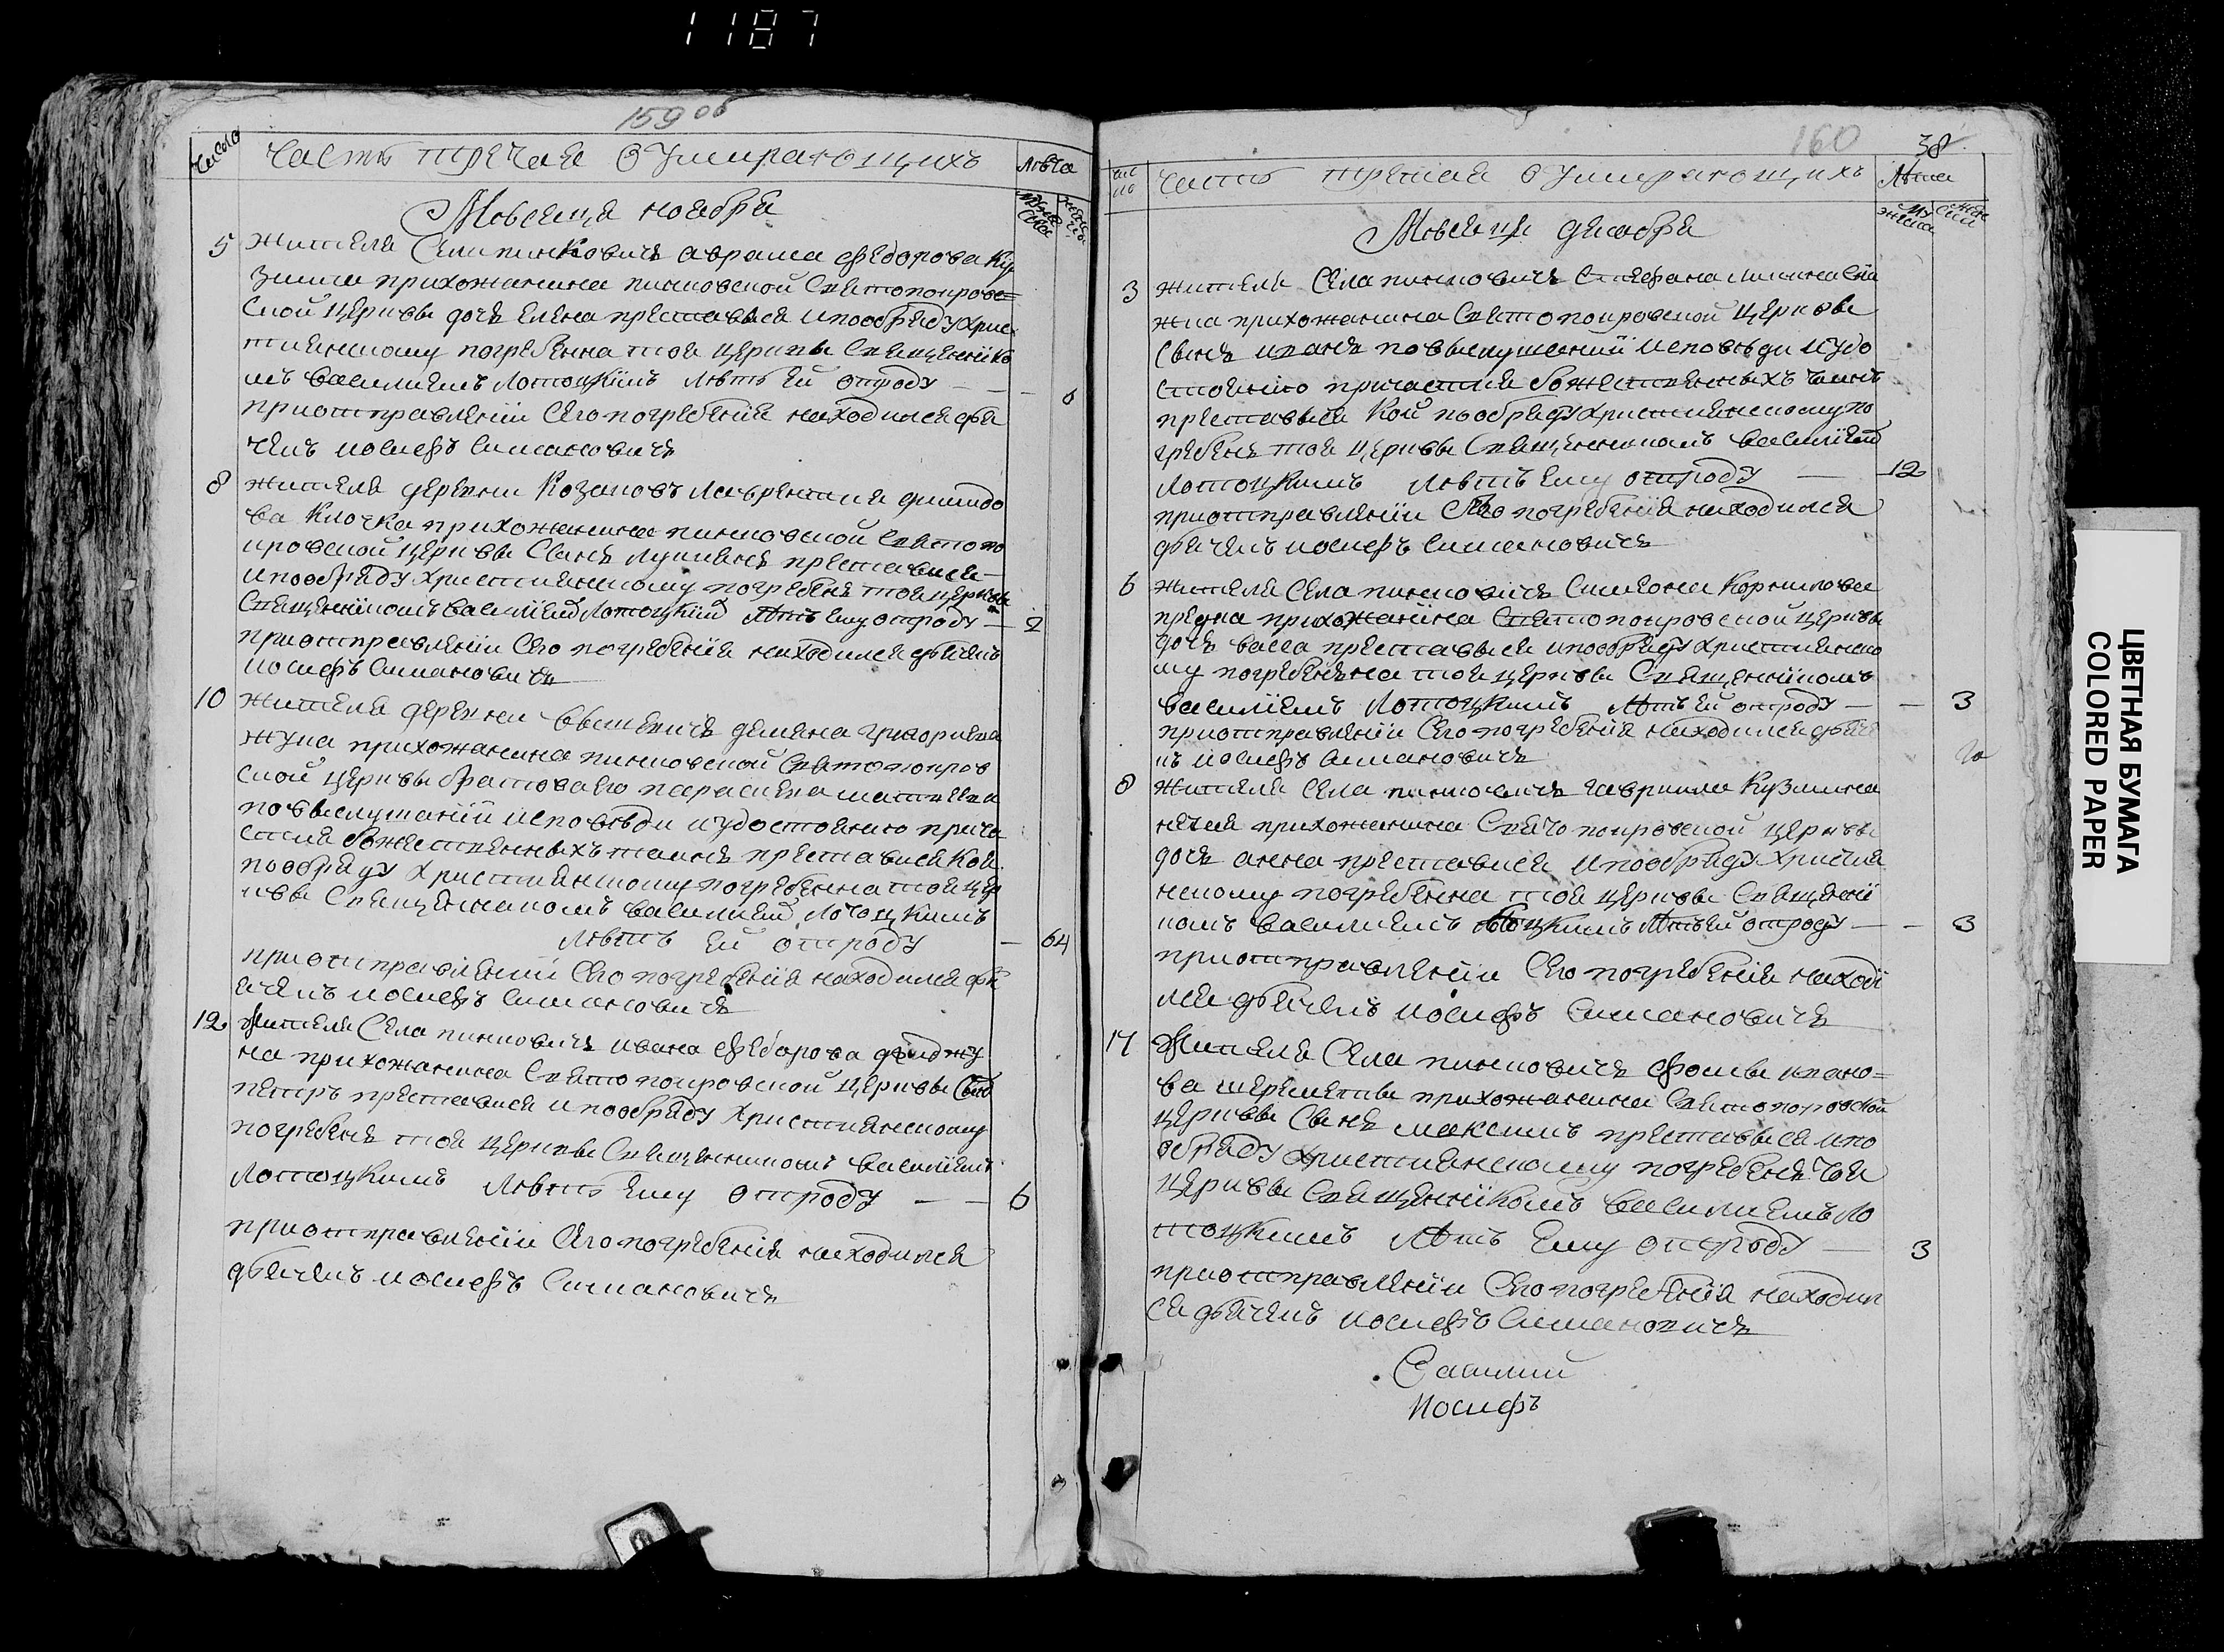 1187
159 об
Число
Часть третая о умирающихъ
Лѣта
Мѣсяца ноября
5
жителя Села пинковичъ аврама федорова Ку
змича прихожанина пинковской Святопокров=
ской церквы дочъ елена преставися и пообряду хрис
тиянскому погребенна тоя церквы Священико
мъ василиемъ лотоцкимъ лѣтъ ей отроду
6
приотправлении Сего погребения находился дья
чекъ иосифъ симановичъ
8
жителя деревни Козляковичъ лаврентия
ва клочка прихожанина пинковской Святопо
кровской церквы Сынъ лукиянъ преставися
и пообряду християнскому погребенъ тоя церквы
Священикомъ василием лотоцким лѣтъ ему отроду
2
приотправлении Сего погребения находился дьячекъ
иосифъ симановичъ
10
жителя деревни вышевичъ демяна григориева
жука прихожанина пинковской Святопокров
ской церквы братоваего параскева матвеева
повыслушании исповѣди и удостоянию прича
стия божественныхъ таинъ преставися коя
пообряду християнскому погребенна тоя цер
квы Священникомъ василием лотоцкимъ
лѣтъ ей отроду
64
приотправлении Сего погребения находился дья
чекъ иосифъ симановичъ
12
жителя Села пинковичъ ивана федорова
на прихожанина Святопокровской церквы Сын
петръ преставися и пообряду християнскому
погребенъ тоя церквы Священникомъ василиемъ
лотоцкимъ лѣтъ ему отроду
6
приотправлении Сего погребения находился
дьячекъ иосифъ Симановичъ
160
38
чис
ло
часть третая о умирающихъ
Лѣта
му
жеска
жен
ски
Мѣсяца декабря
3
жителя Села пинковичъ Стефана
прихожанина Святопокровской церквы
Сынъ иванъ повыслушании исповѣди и удо
стоянию причастия божественныхъ таинъ
преставися кой пообряду християнскому по
гребенъ тоя церквы Священникомъ василием
лотоцкимъ лѣтъ ему отроду
12
приотправлении Сего погребения находился
дьячекъ иосифъ симановичъ
6
жителя Села пинковичъ Симиона Корнилова
прихожанина Святопокровской церквы
дочъ васса преставися и пообряду християнско
му погребенна тоя церквы Священикомъ
василиемъ лотоцкимъ лѣтъ ей отроду
3
приотправлении Сего погребения находился дьяче
къ иосифъ симановичъ
8
жителя Села пинковичъ гавриила Кузмина
прихожанина Святопокровской церквы
дочъ анна преставися и пообряду християн
нскому погребенна тоя церквы Священи
комъ василиемъ лотоцкимъ лѣтъ ей отроду
3
приотправлении Сего погребения находи
лся дьячекъ иосифъ Симановичъ
17
жителя Села пинковичъ фомы ивано=
ва шереметы прихожанина Святопокровской
церквы Сынъ максимъ преставися и по
обряду християнскому погребенъ тоя
церквы Священикомъ василиемъ ло
тоцкимъ лѣтъ ему отроду
3
приотправлении Сего погребения находил
ся дьячекъ иосифъ симановичъ
Иосифъ
ЦВЕТНАЯ БУМАГА
COLORED PAPER